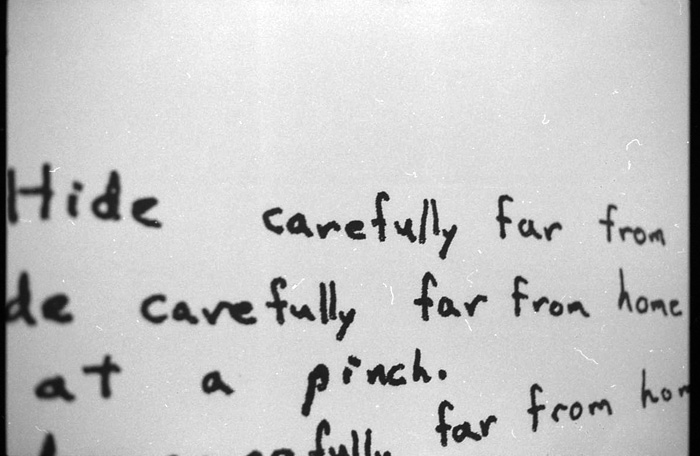 Hide carefully far from
de carefully far from home
at a pinch.
far from hom